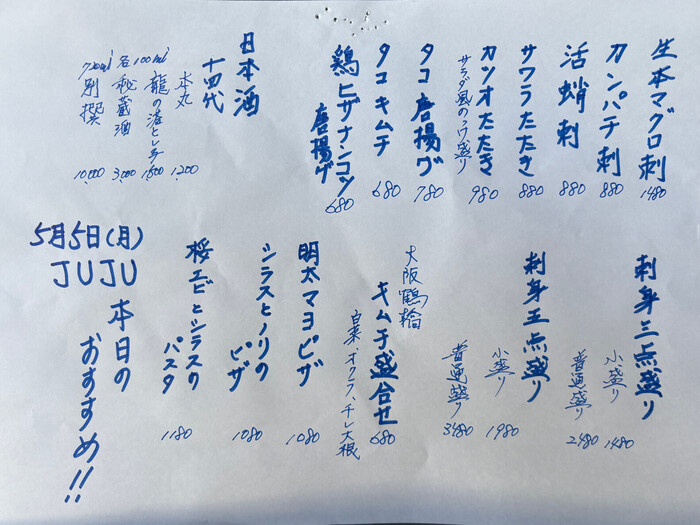 生本マグロ刺
1480
カンパチ刺
880
活蛸刺
880
サワラたたき
880
カツオたたき
サラダ風のっけ盛り
980
タコ唐揚げ
780
タコキムチ
680
鶏ヒザナンコツ
唐揚げ
680
日本酒
十四代
本丸
1,200
各100ml
龍の落とし子
1,500
秘蔵酒
3,000
720ml
別撰
10,000
刺身三点盛り
小盛り
1480
普通盛り
2480
刺身五点盛り
小盛り
1980
普通盛り
3480
大阪鶴輪
キムチ盛合せ
白菜、オクラ、チレ大根
680
明太マヨピザ
1080
シラスとノリの
ピザ
1080
桜エビとシラスの
パスタ
1180
5月5日(月)
JUJU
本日の
おすすめ!!